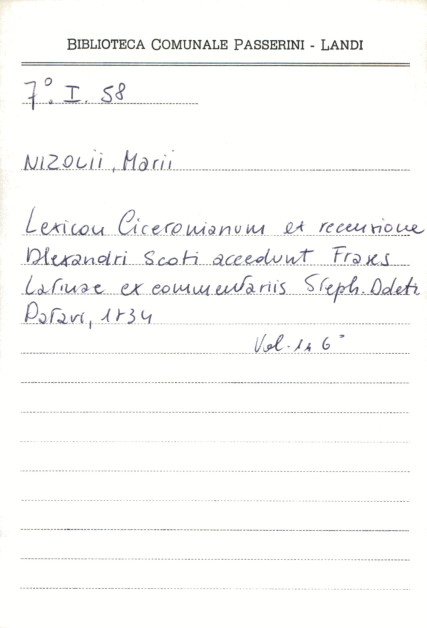 BIBLIOTECA COMUNALE PASSERINI - LANDI
7°. I. 58
NIZOLII, Marii
Lexicon Ciceronianum ex recensione
Alexandri Scoti accedunt Frases
Latinae ex commentariis Steph. Doleti
Patavi, 1734
Vol. 1